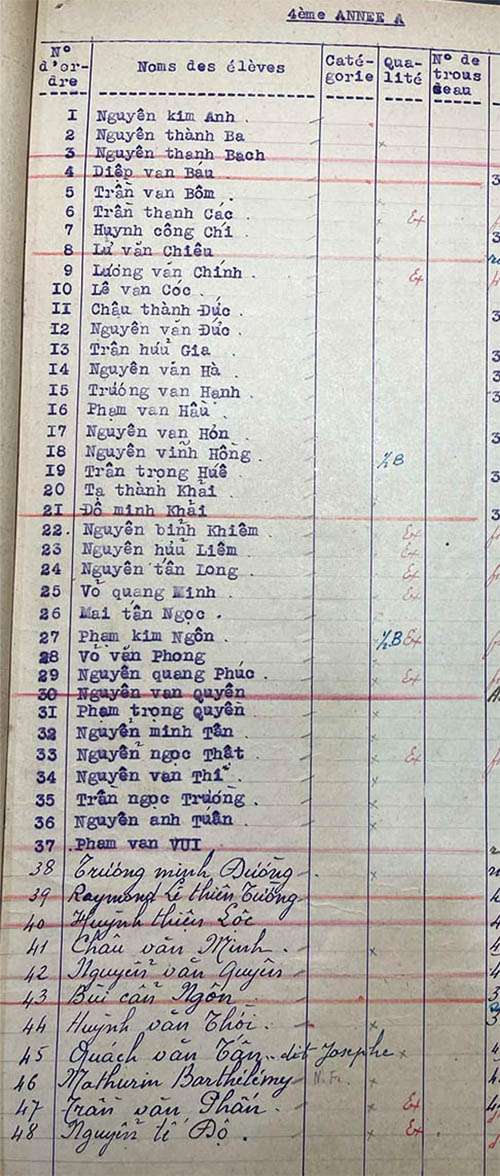 4ème ANNEE A
N° d'or-dre Noms des élèves Caté-gorie Qua-lité N° de trous seau
1 Nguyên kim Anh
2 Nguyên thành Ba
3 Nguyên thanh Bach
4 Diêp van Báu
5 Trân van Bôm
6 Trân thanh Các Ex
7 Huynh công Chí
8 Lư văn Chiêu
9 Lương văn Chính Ex
10 Lê van Cóc
11 Châu thành Đưc
12 Nguyên văn Đưc
13 Trân hưu Gia
14 Nguyên văn Hà
15 Trương van Hanh
16 Pham van Hâu
17 Nguyên van Hón
18 Nguyên vinh Hông ½ B
19 Trân trong Huê
20 Ta thành Khai
21 Đô minh Khai
22. Nguyên binh Khiêm Ex
23 Nguyên hưu Liêm Ex
24 Nguyên tân Long Ex
25 Vô quang Minh Ex
26 Mai tân Ngoc
27 Pham kim Ngôn ½ B Ex
28 Vô văn Phong
29 Nguyên quang Phúc Ex
30 Nguyên van Quyên
31 Pham trong Quyên
32 Nguyên minh Tân
33 Nguyên ngoc Thât Ex
34 Nguyên van Thi
35 Trân ngoc Trương
36 Nguyên anh Tuân
37 Pham van VUI
38 Trương minh Dương
39 Raymond Lê thiên Tương
40 Huỳnh thiên Lôc
41 Châu văn Minh
42 Nguyên văn Quyên
43 Bùi cân Ngôn
44 Huỳnh văn Thơi
45 Quách văn Tân dit Josephe
46 Mathurin Barthélémy N. Fr.
47 Trân văn Phán Ex
48 Nguyên tê Độ Ex